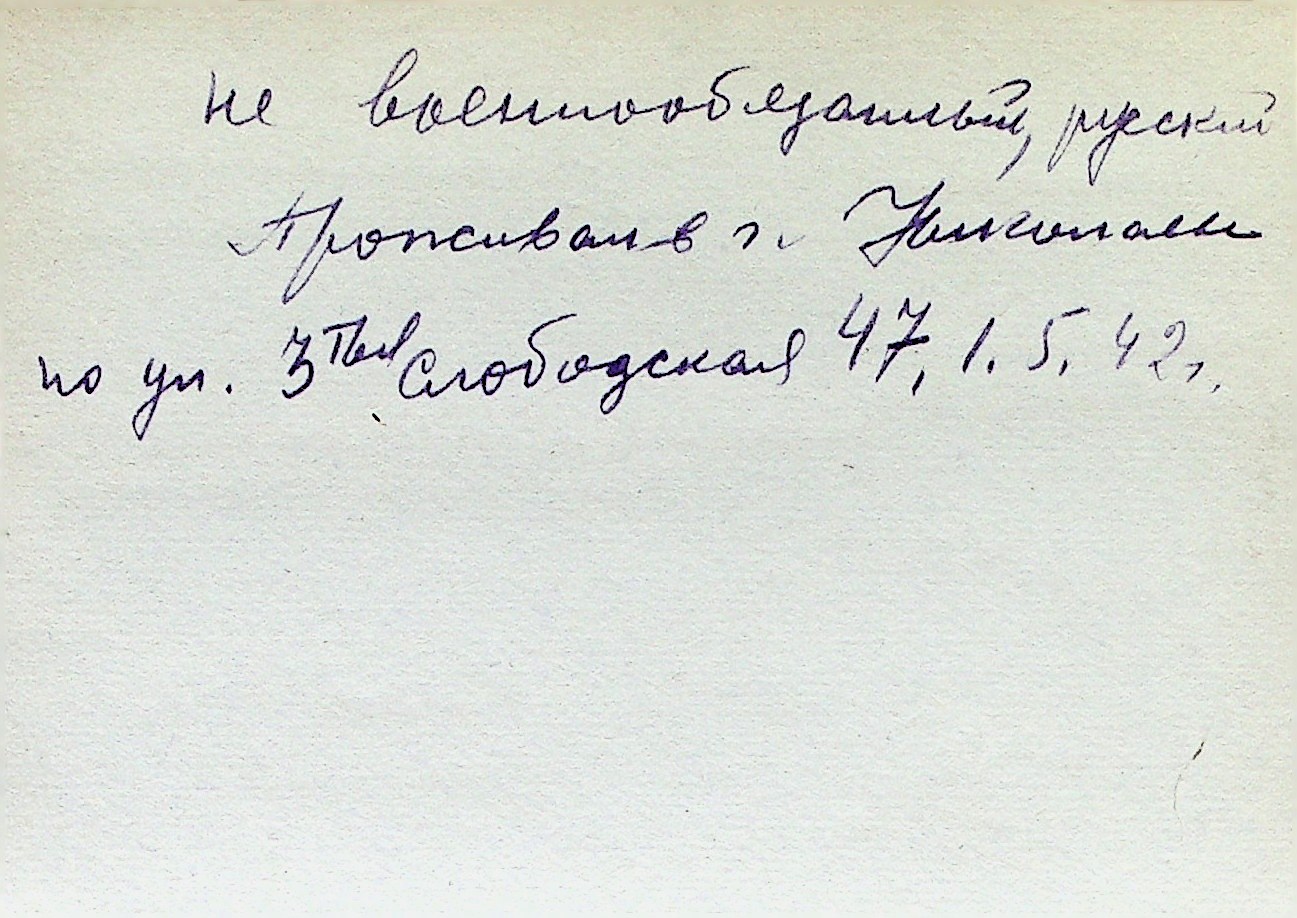 не военнообязанный, русский
Проживал в г. Николаеве
по ул. 3тья Слободская 47, 1.5.42г.